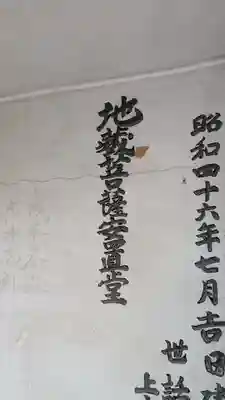 昭和四十六年七月吉日建
世話
上
地蔵菩薩安置堂